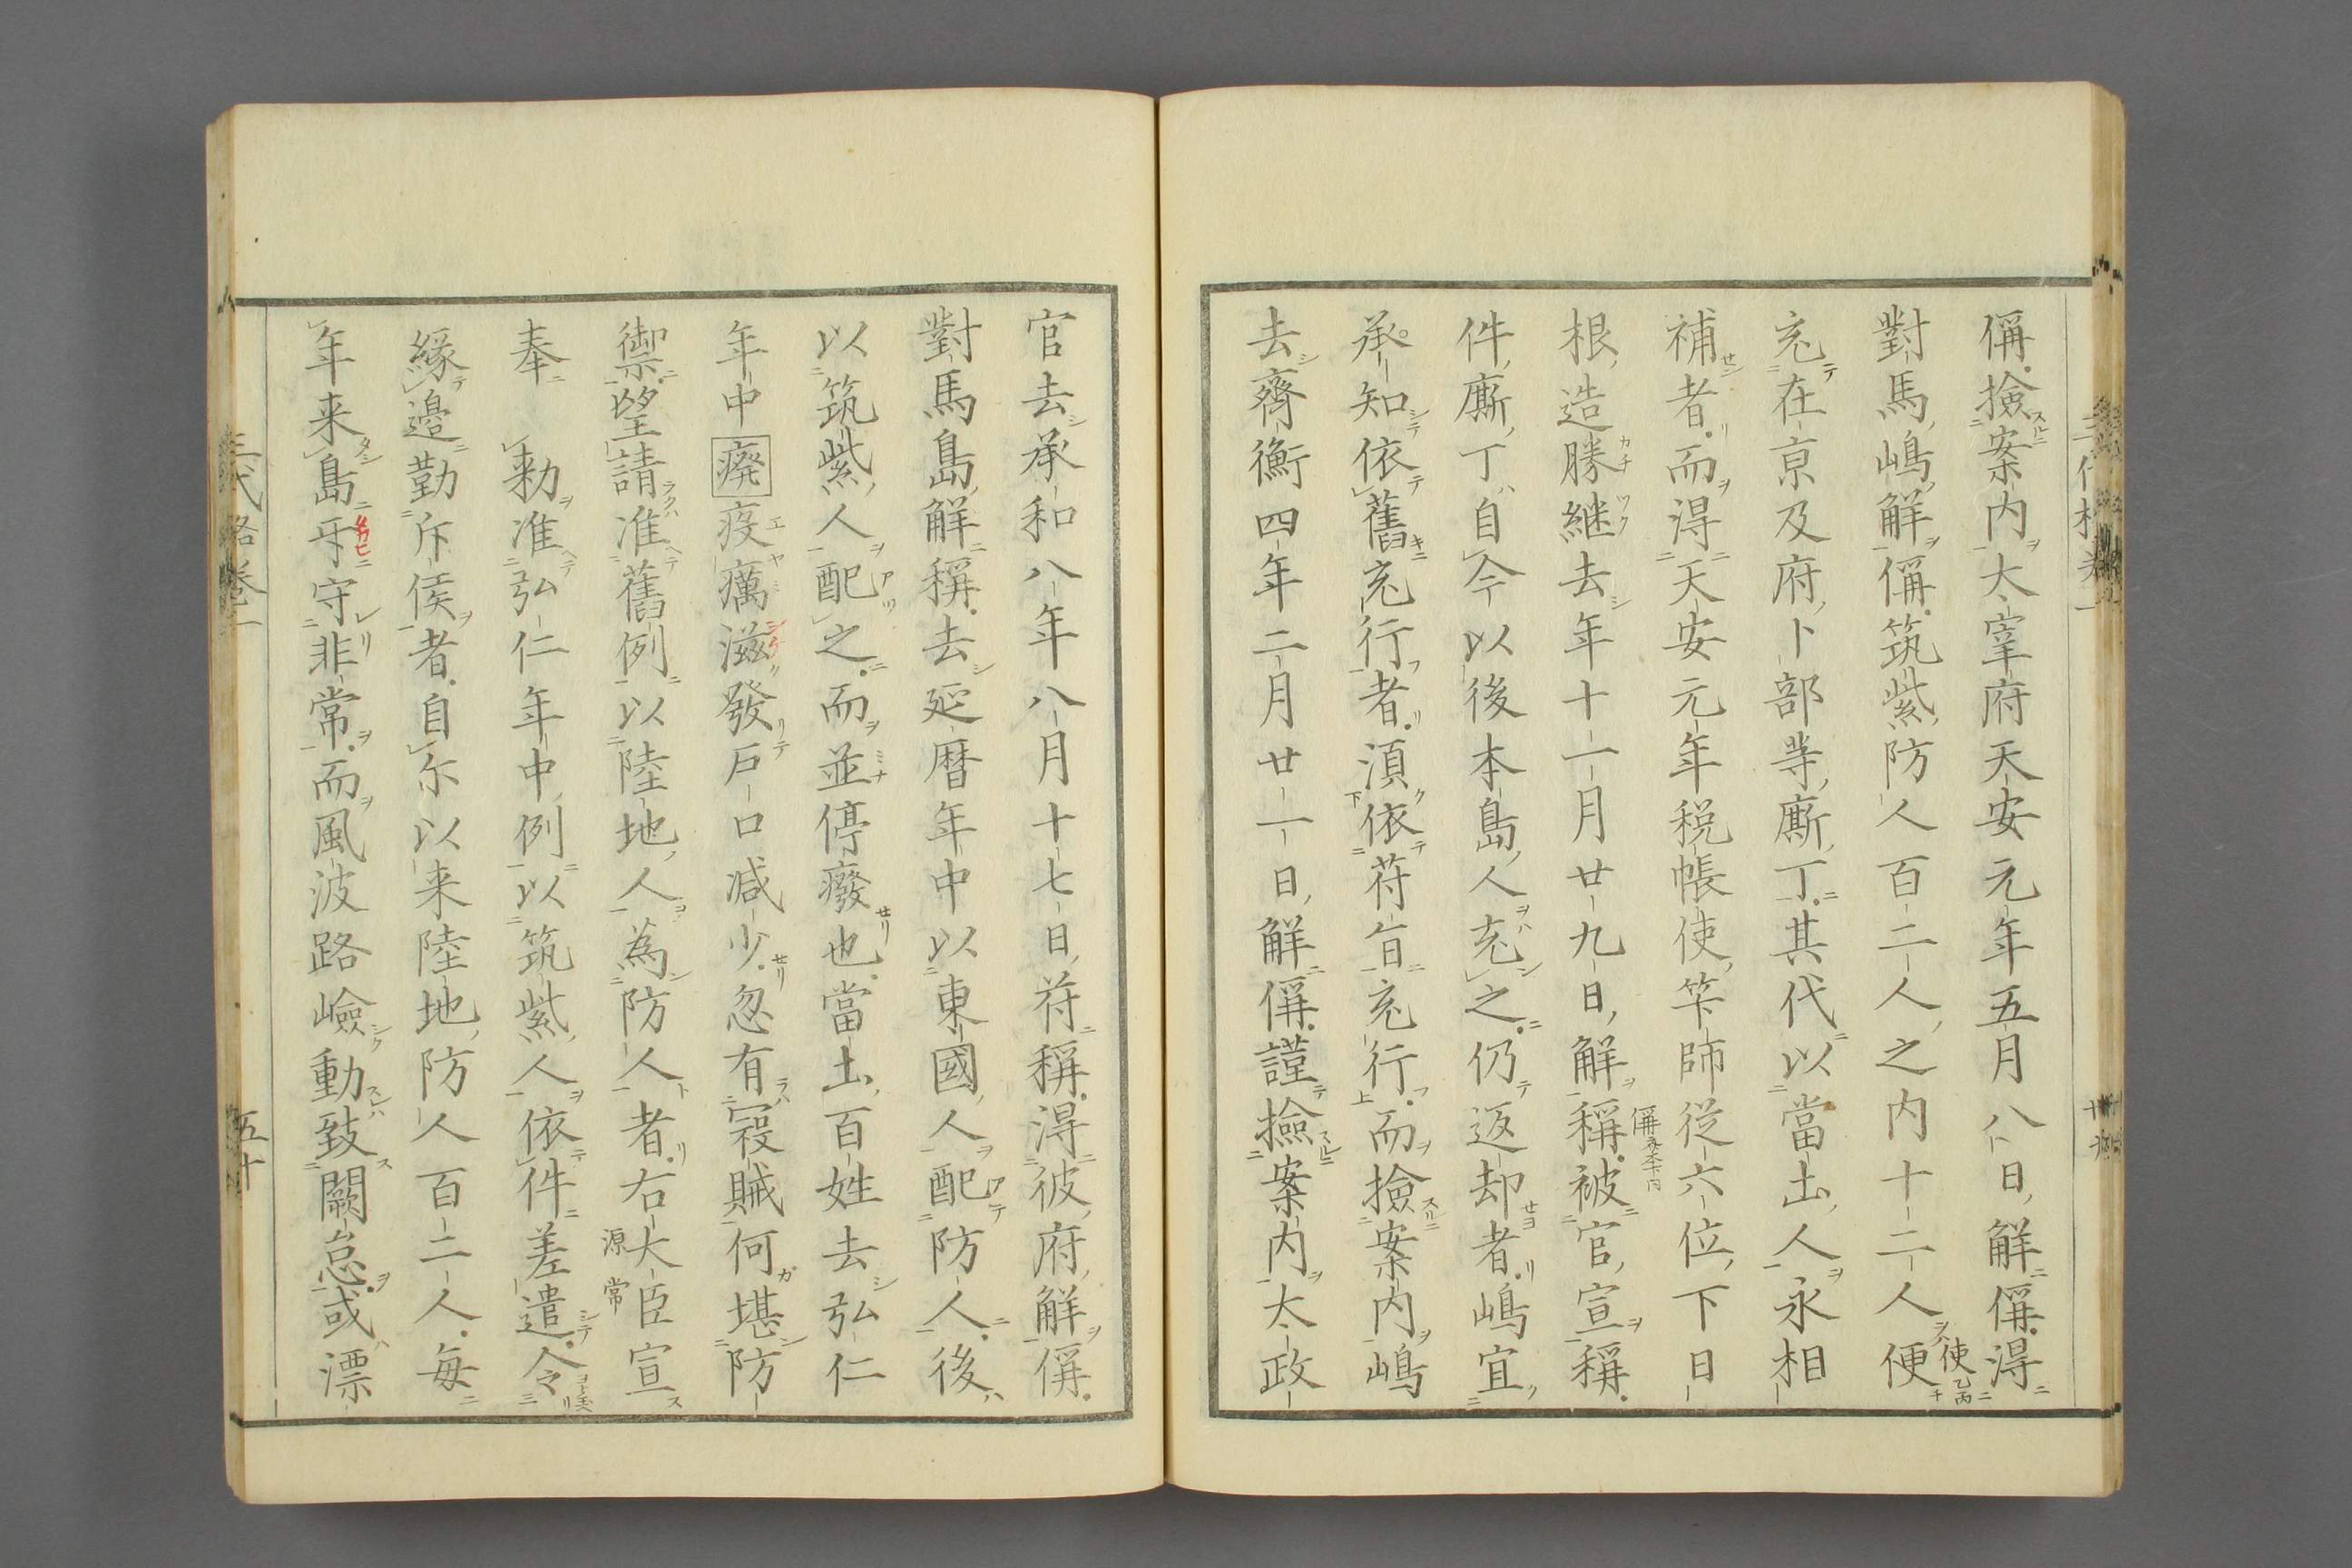 偁撿案内太宰府天安元年五月八日解偁得
對馬嶋解偁筑紫防人百二人之内十二人便
充在京及府卜部等廝丁其代以當土人永相
補者而得天安元年税帳使笇師従六位下日
根造勝継去年十一月廿九日解稱被官宣稱
件廝丁自今以後本島人充之仍返却者嶋宜
承知依舊充行者湏依苻旨充行而撿案内嶋
去齊衡四年二月廿一日解偁謹撿案内太政
官去承和八年八月十七日苻稱得彼府解偁
對馬島解稱去延暦年中以東國人配防人後
以筑紫人配之而並停癈也當土百姓去弘仁
年中癈疫癘滋發戸口减少忽有寇賊何堪防
禦望請准舊例以陸地人為防人者右大臣宣
源常
奉　勅准弘仁年中例以筑紫人依件差遣令
緣邉勤斥候者自尓以来陸地防人百二人毎
年来島戍守非常而風波路嶮動致闕怠或漂
五十